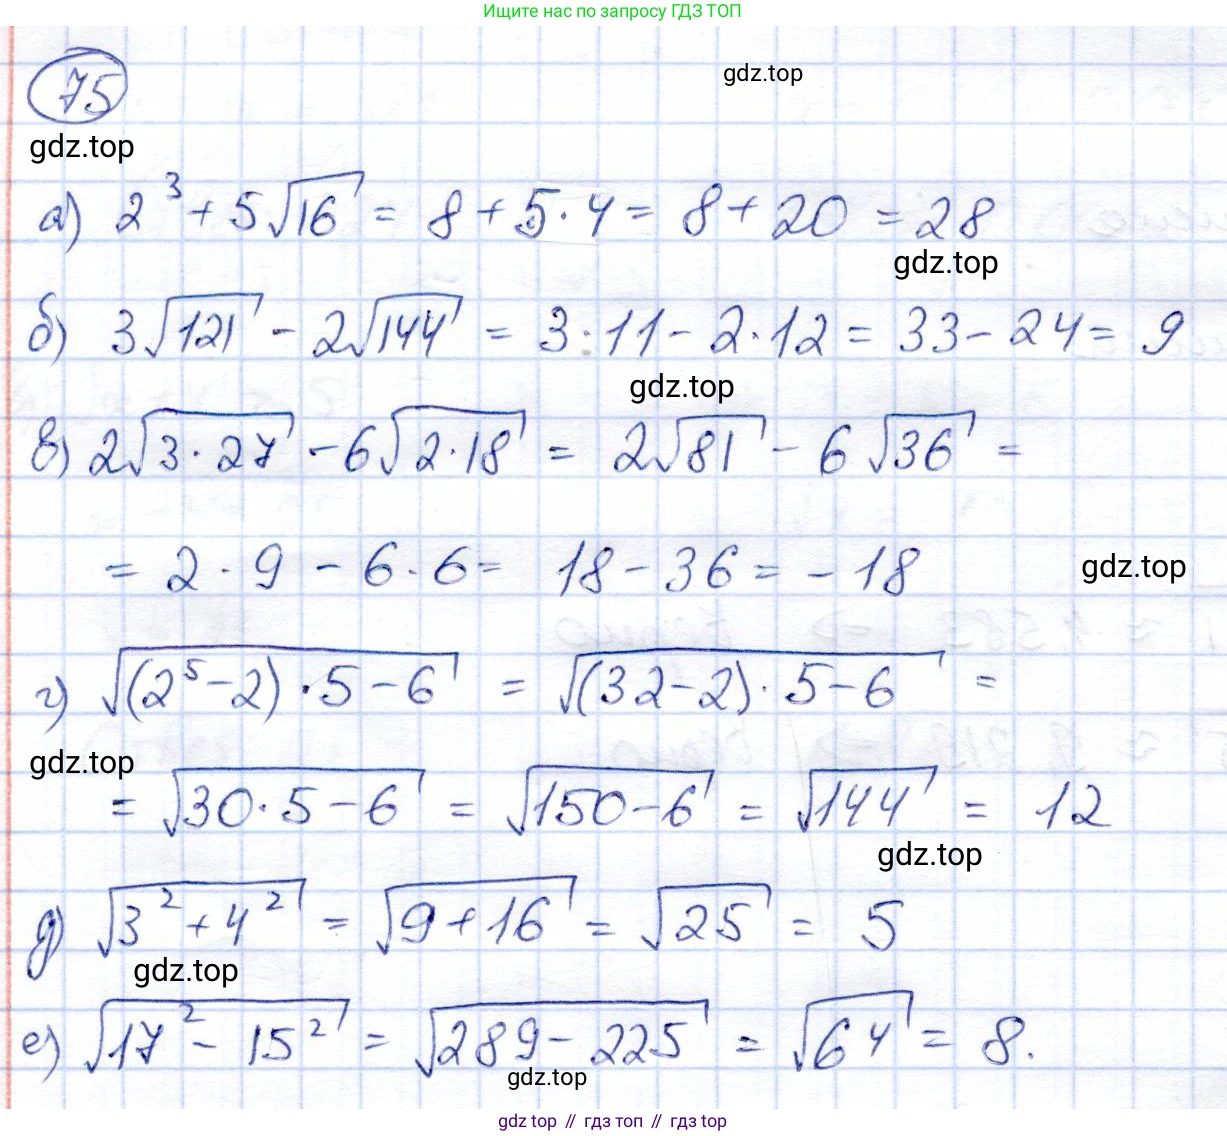 Ищите нас по запросу ГДЗ ТОП
75
gdz.top
gdz.top
а) 2³ + 5√16 = 8 + 5·4 = 8 + 20 = 28
gdz.top
б) 3√121 - 2√144 = 3·11 - 2·12 = 33 - 24 = 9
gdz.top
в) 2√(3·27) - 6√(2·18) = 2√81 - 6√36 =
= 2·9 - 6·6 = 18 - 36 = -18
gdz.top
г) √((2⁵-2)·5-6) = √((32-2)·5-6) =
gdz.top
= √(30·5-6) = √(150-6) = √144 = 12
gdz.top
д) √(3²+4²) = √(9+16) = √25 = 5
gdz.top
е) √(17²-15²) = √(289-225) = √64 = 8.
gdz.top
gdz top // гдз топ // гдз top